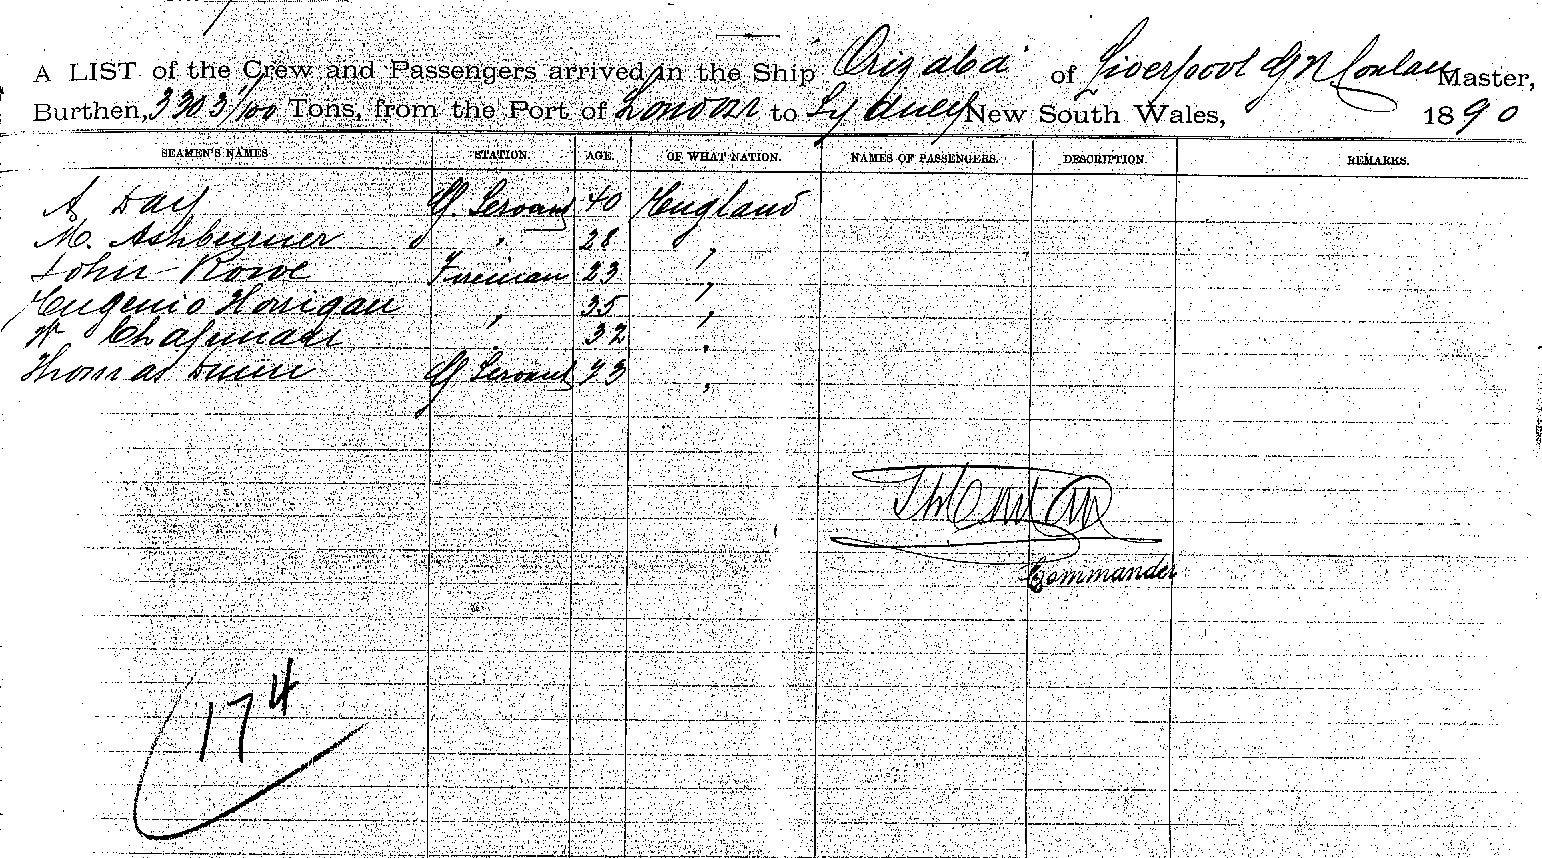 A LIST of the Crew and Passengers arrived in the Ship Orizaba of Liverpool G N Conlan Master,
Burthen, 3303 1/100 Tons, from the Port of London to Sydney New South Wales, 1890
SEAMEN'S NAMES STATION. AGE. OF WHAT NATION. NAMES OF PASSENGERS. DESCRIPTION. REMARKS.
A Day G. Servant 40 England
M. Ashburner " 28 "
John Rowe Fireman 23 "
Eugenio Horrigan " 35 "
W Chapman 32 "
Thomas Dunn G Servant 23 "
Commander
174